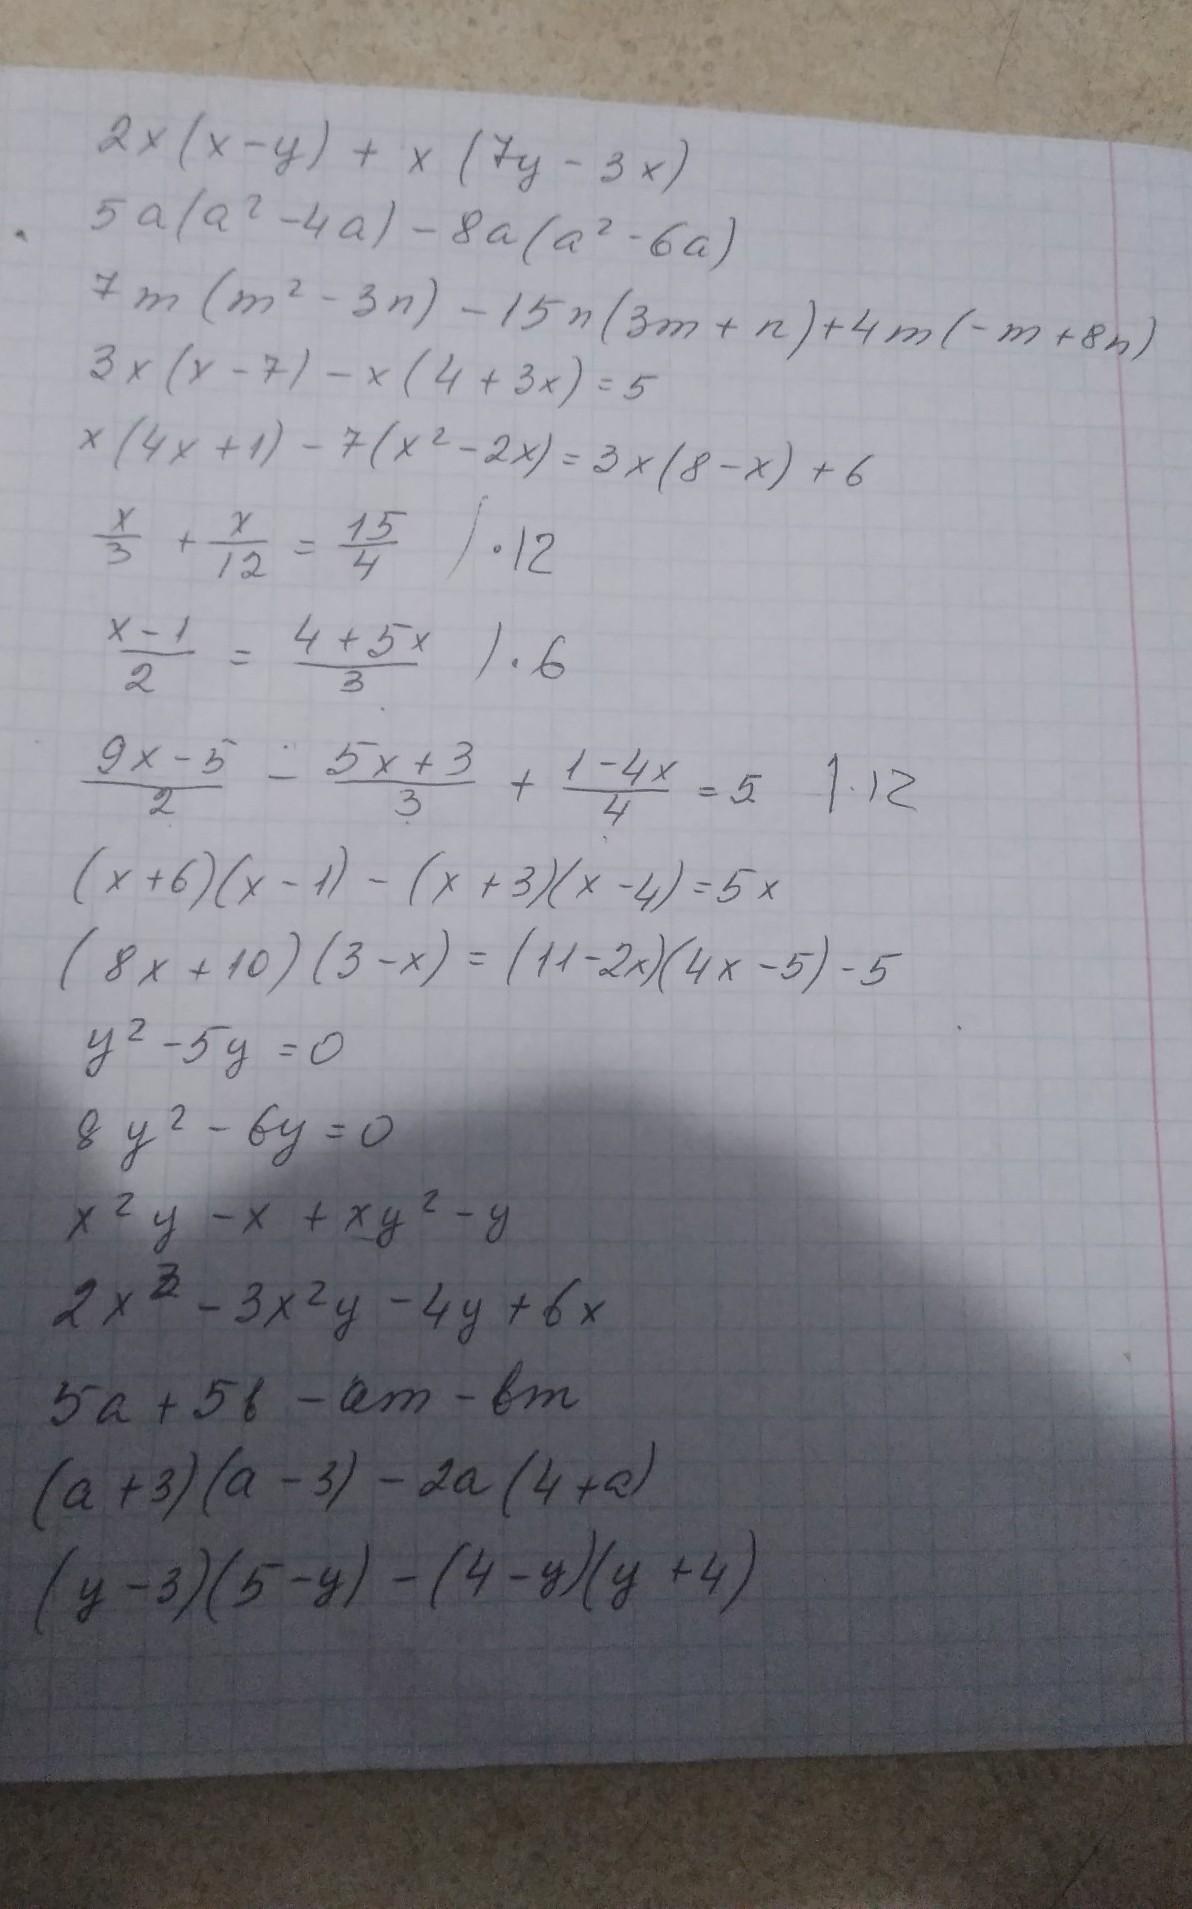 2x(x-y) + x(7y-3x)
5a(a² -4a) - 8a(a² -6a)
7m(m² -3n) -15n(3m+n)+4m(-m+8n)
3x(x-7) -x(4+3x)=5
x(4x+1) -7(x² -2x)=3x(8-x)+6
x/3 + x/12 = 15/4 |·12
(x-1)/2 = (4+5x)/3 |·6
(9x-5)/2 - (5x+3)/3 + (1-4x)/4 = 5 |·12
(x+6)(x-1) - (x+3)(x-4)=5x
(8x+10)(3-x) = (11-2x)(4x-5)-5
y² -5y =0
8y² -6y=0
x²y -x + xy² -y
2x³ -3x²y -4y+6x
5a+5b -am -bm
(a+3)(a-3) -2a(4+a)
(y-3)(5-y) -(4-y)(y+4)